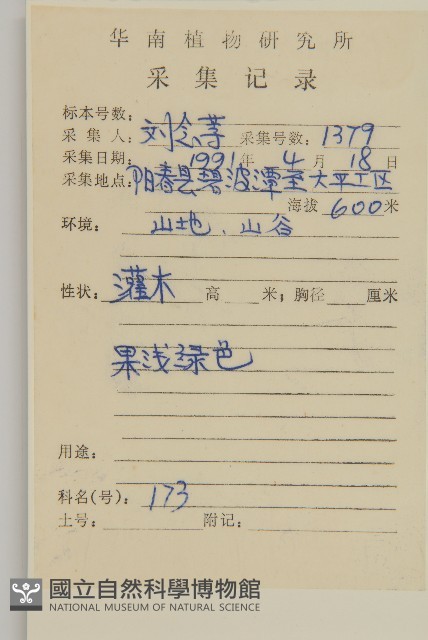 华南植物研究所
采集记录
标本号数:
采集人: 刘念等 采集号数: 1379
采集日期: 1991年 4月 18日
采集地点: 阳春县碧波潭至大平工区
海拔 600米
环境: 山地、山谷
性状: 灌木 高 米; 胸径 厘米
果浅绿色
用途:
科名(号): 173
土号: 附记:
國立自然科學博物館
NATIONAL MUSEUM OF NATURAL SCIENCE